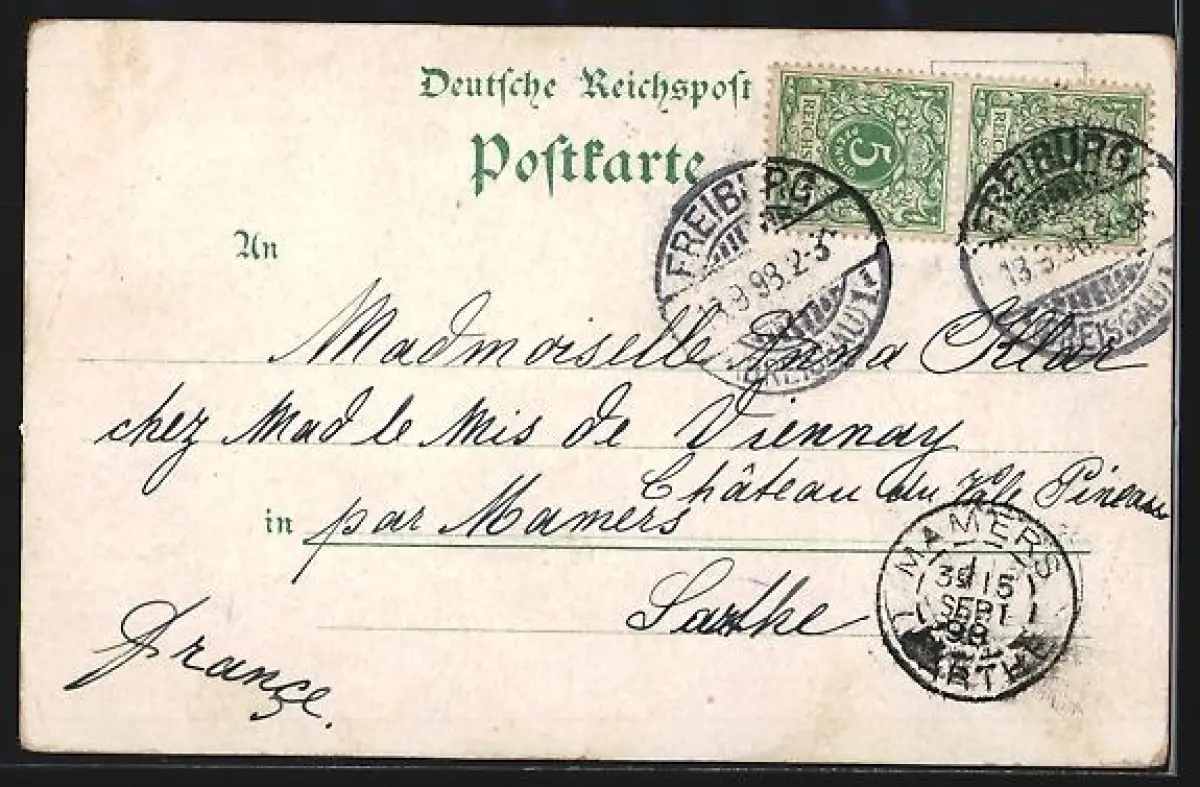 Deutsche Reichspost
Postkarte
REICHSP
5
PFENNIG
REICHS
FREIBURG
13.9.98.2-3
(BREISGAU) 1
FREIBURG
13.9.98.2-3
(BREISGAU) 1
An
Madmoiselle Anna Klar
chez Mad le Mis de Viennay
Château du Pineau
in par Mamers
Sarthe
France.
MAMERS
3E 15
SEPT
98
SARTHE